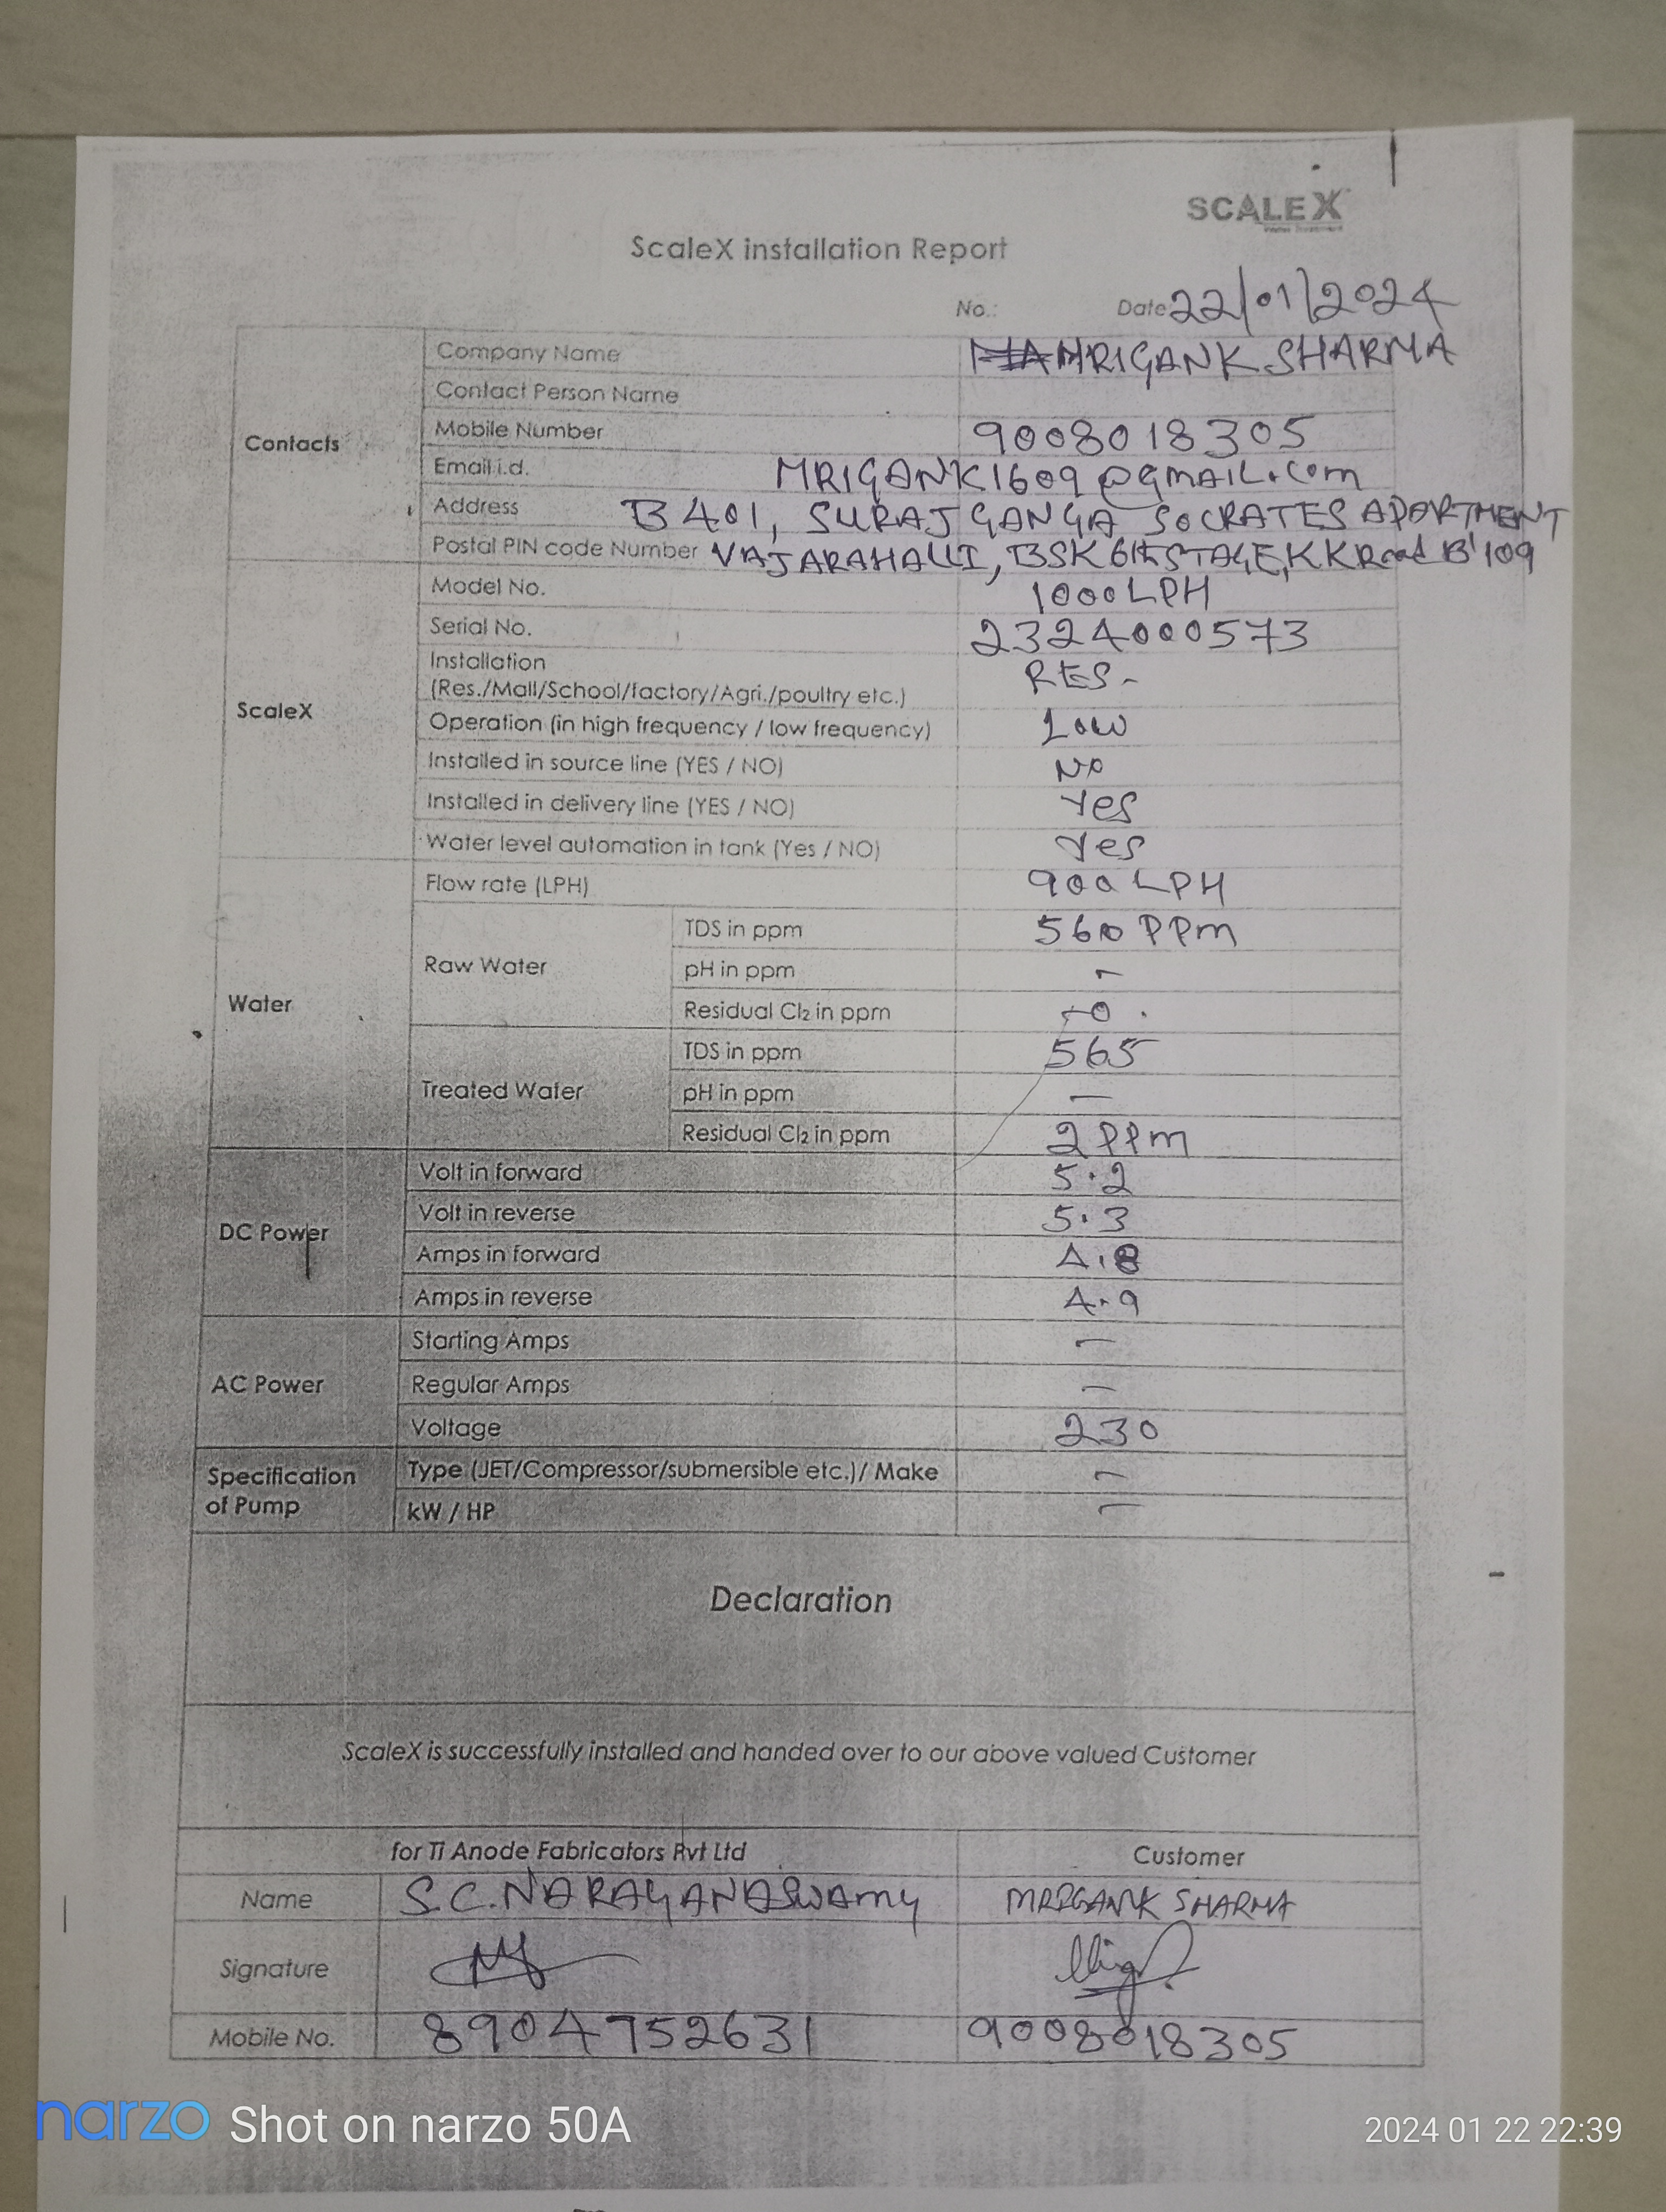 SCALEX
Water Treatment
ScaleX installation Report
No.: Date 22/01/2024
Contacts
Company Name MRIGANK SHARMA
Contact Person Name
Mobile Number 9008018305
Email i.d. MRIGANK1609@GMAIL.COM
Address B 401, SURAJ GANGA SOCRATES APARTMENT
Postal PIN code Number VAJARAHALLI, BSK 6th STAGE, KK Road B'109
ScaleX
Model No. 1000 LPH
Serial No. 2324000573
Installation
(Res./Mall/School/factory/Agri./poultry etc.) RES-
Operation (in high frequency / low frequency) Low
Installed in source line (YES / NO) NO
Installed in delivery line (YES / NO) Yes
Water level automation in tank (Yes / NO) Yes
Water
Flow rate (LPH) 900 LPH
Raw Water
TDS in ppm 560 PPm
pH in ppm -
Residual Cl₂ in ppm -0.
Treated Water
TDS in ppm 565
pH in ppm —
Residual Cl₂ in ppm 2 PPm
DC Power
Volt in forward 5.2
Volt in reverse 5.3
Amps in forward 4.8
Amps in reverse 4.9
AC Power
Starting Amps —
Regular Amps —
Voltage 230
Specification
of Pump
Type (JET/Compressor/submersible etc.)/ Make —
kW / HP —
Declaration
ScaleX is successfully installed and handed over to our above valued Customer
for Ti Anode Fabricators Pvt Ltd Customer
Name S.C. NARAYANASWAMY MRIGANK SHARMA
Signature
Mobile No. 8904752631 9008018305
narzo Shot on narzo 50A 2024 01 22 22:39